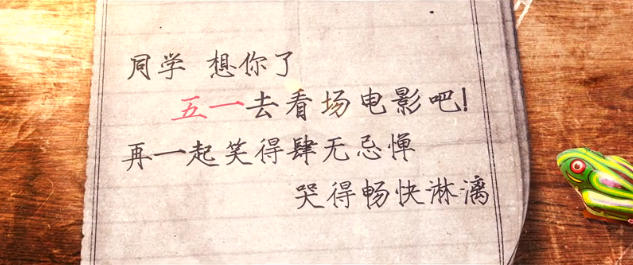 同学 想你了
五一去看场电影吧!
再一起笑得肆无忌惮
哭得畅快淋漓